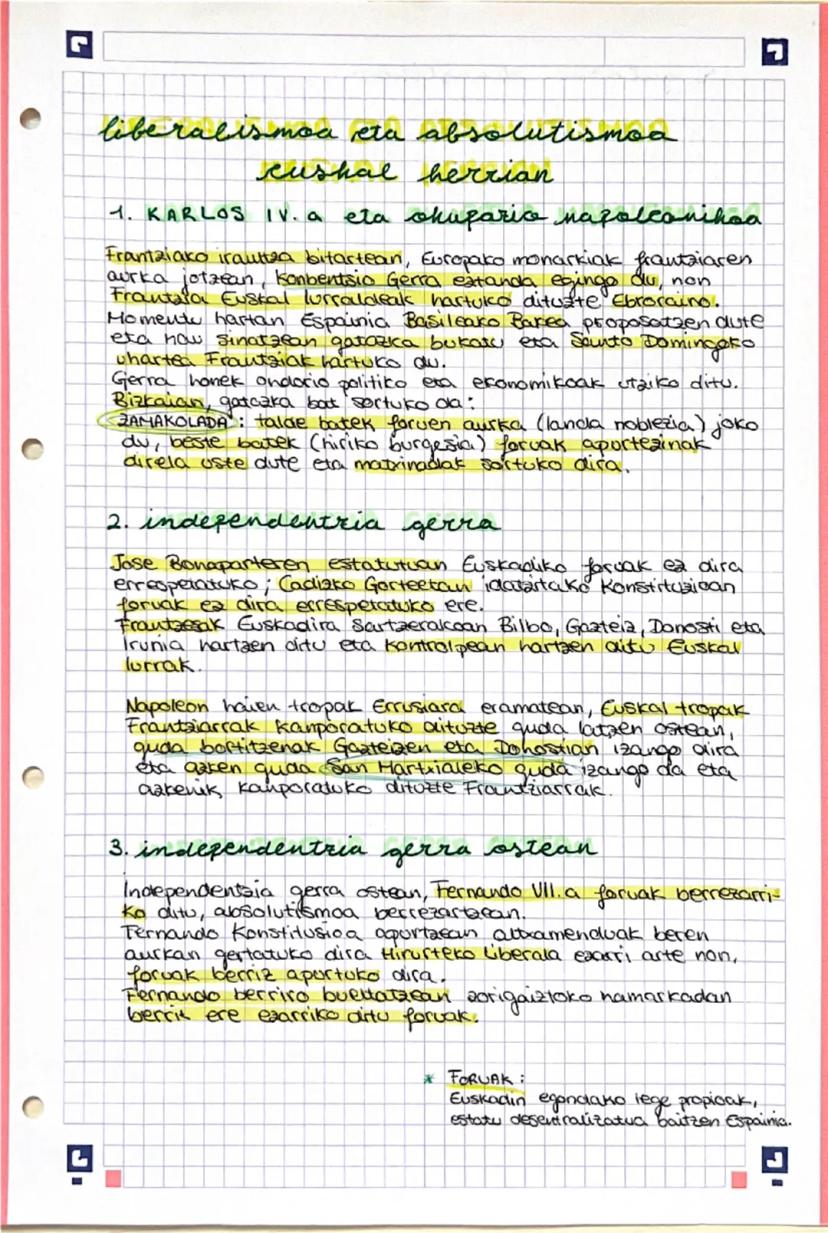 liberalismoa eta absolutismoa
euskal herrian
1. KARLOS IV.a eta okupazio napoleonikoa
Frantziako iraultza bitartean, Europako monarkiak frantziaren
aurka jotzean, Konbentsio Gerra eztanda egingo du, non
Frantziak Euskal lurraldeak hartuko dituzte Ebroraino.
Momentu hartan Espainia Basileako Bakea proposatzen dute
eta hau sinatzean gatazka bukatu eta Santo Domingoko
uhartea Frantziak hartuko du.
Gerra honek ondorio politiko eta ekonomikoak utziko ditu.
Bizkaian, gatazka bat sortuko da:
ZAMAKOLADA : talde batek foruen aurka (landa noblezia) joko
du, beste batek (hiriko burgesia) foruak aportezinak
direla uste dute eta matxinadak sortuko dira.
2. independentzia gerra
Jose Bonaparteren estatutuan Euskadiko foruak ez dira
errespetatuko; Cadizko Gorteetan idatzitako Konstituzioan
foruak ez dira errespetatuko ere.
Frantzesak Euskadira sartzerakoan Bilbo, Gazteiz, Donosti eta
Irunia hartzen ditu eta kontrolpean hartzen ditu Euskal
lurrak.
Napoleon haien tropak Errusiara eramatean, Euskal tropak
Frantziarrak kanporatuko dituzte guda latzen ostean,
guda bortitzenak Gazteizen eta Donostian izango dira
eta azken guda San Martxialeko guda izango da eta
azkenik, kanporatuko dituzte Frantziarrak.
3. independentzia gerra ostean
Independentzia gerra ostean, Fernando VII.a foruak berrezarri-
ko ditu, absolutismoa berrezartzean.
Fernando Konstitusioa aportzean altxamenduak beren
aurkan gertatuko dira Hirurteko Liberala ezarri arte non,
foruak berriz aportuko dira.
Fernando berriro bueltatzean zorigaiztoko hamarkadan
berriz ere ezarriko ditu foruak.
* FORUAK :
Euskadin egondako lege propioak,
estatu desentralizatua baitzen Espainia.